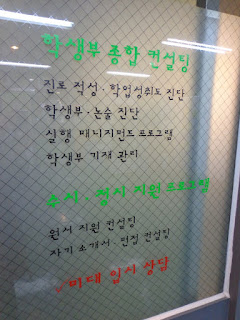 학생부 종합 컨설팅
진로 적성·학업성취도 진단
학생부·논술 진단
실행 매니지먼트 프로그램
학생부 기재 관리
수시·정시 지원 프로그램
원서 지원 컨설팅
자기 소개서·면접 컨설팅
✓미대 입시 상담